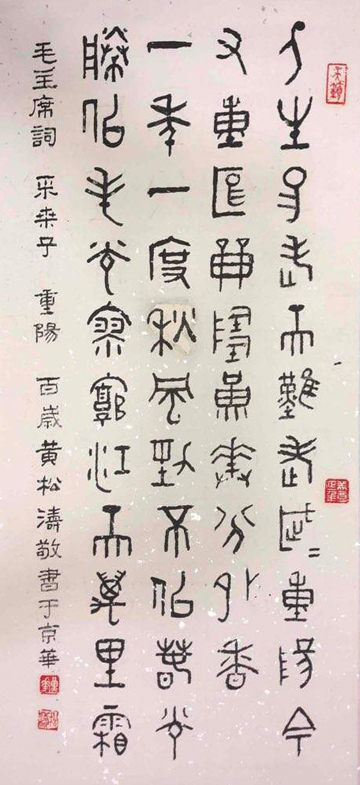 人生易老天難老歲〻重陽今
又重陽戰地黃花分外香
一年一度秋風勁不似春光
勝似春光寥廓江天萬里霜
毛主席詞 采桑子 重陽 百歲黃松濤敬書于京華